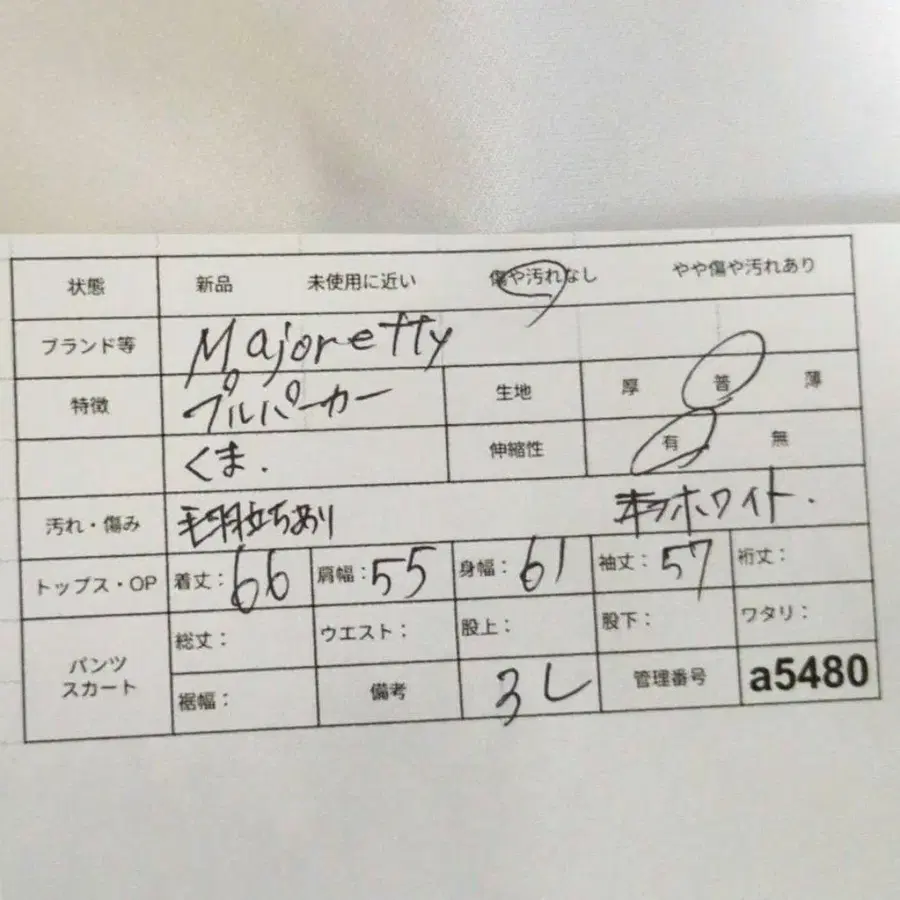 状態 新品 未使用に近い 傷や汚れなし やや傷や汚れあり
ブランド等 Majoretty
特徴 プルパーカー 生地 厚 普 薄
くま. 伸縮性 有 無
汚れ・傷み 毛羽立ちあり ホワイト.
トップス・OP 着丈：66 肩幅：55 身幅：61 袖丈：57 裄丈：
パンツ スカート 総丈： ウエスト： 股上： 股下： ワタリ：
裾幅： 備考 3L 管理番号 a5480